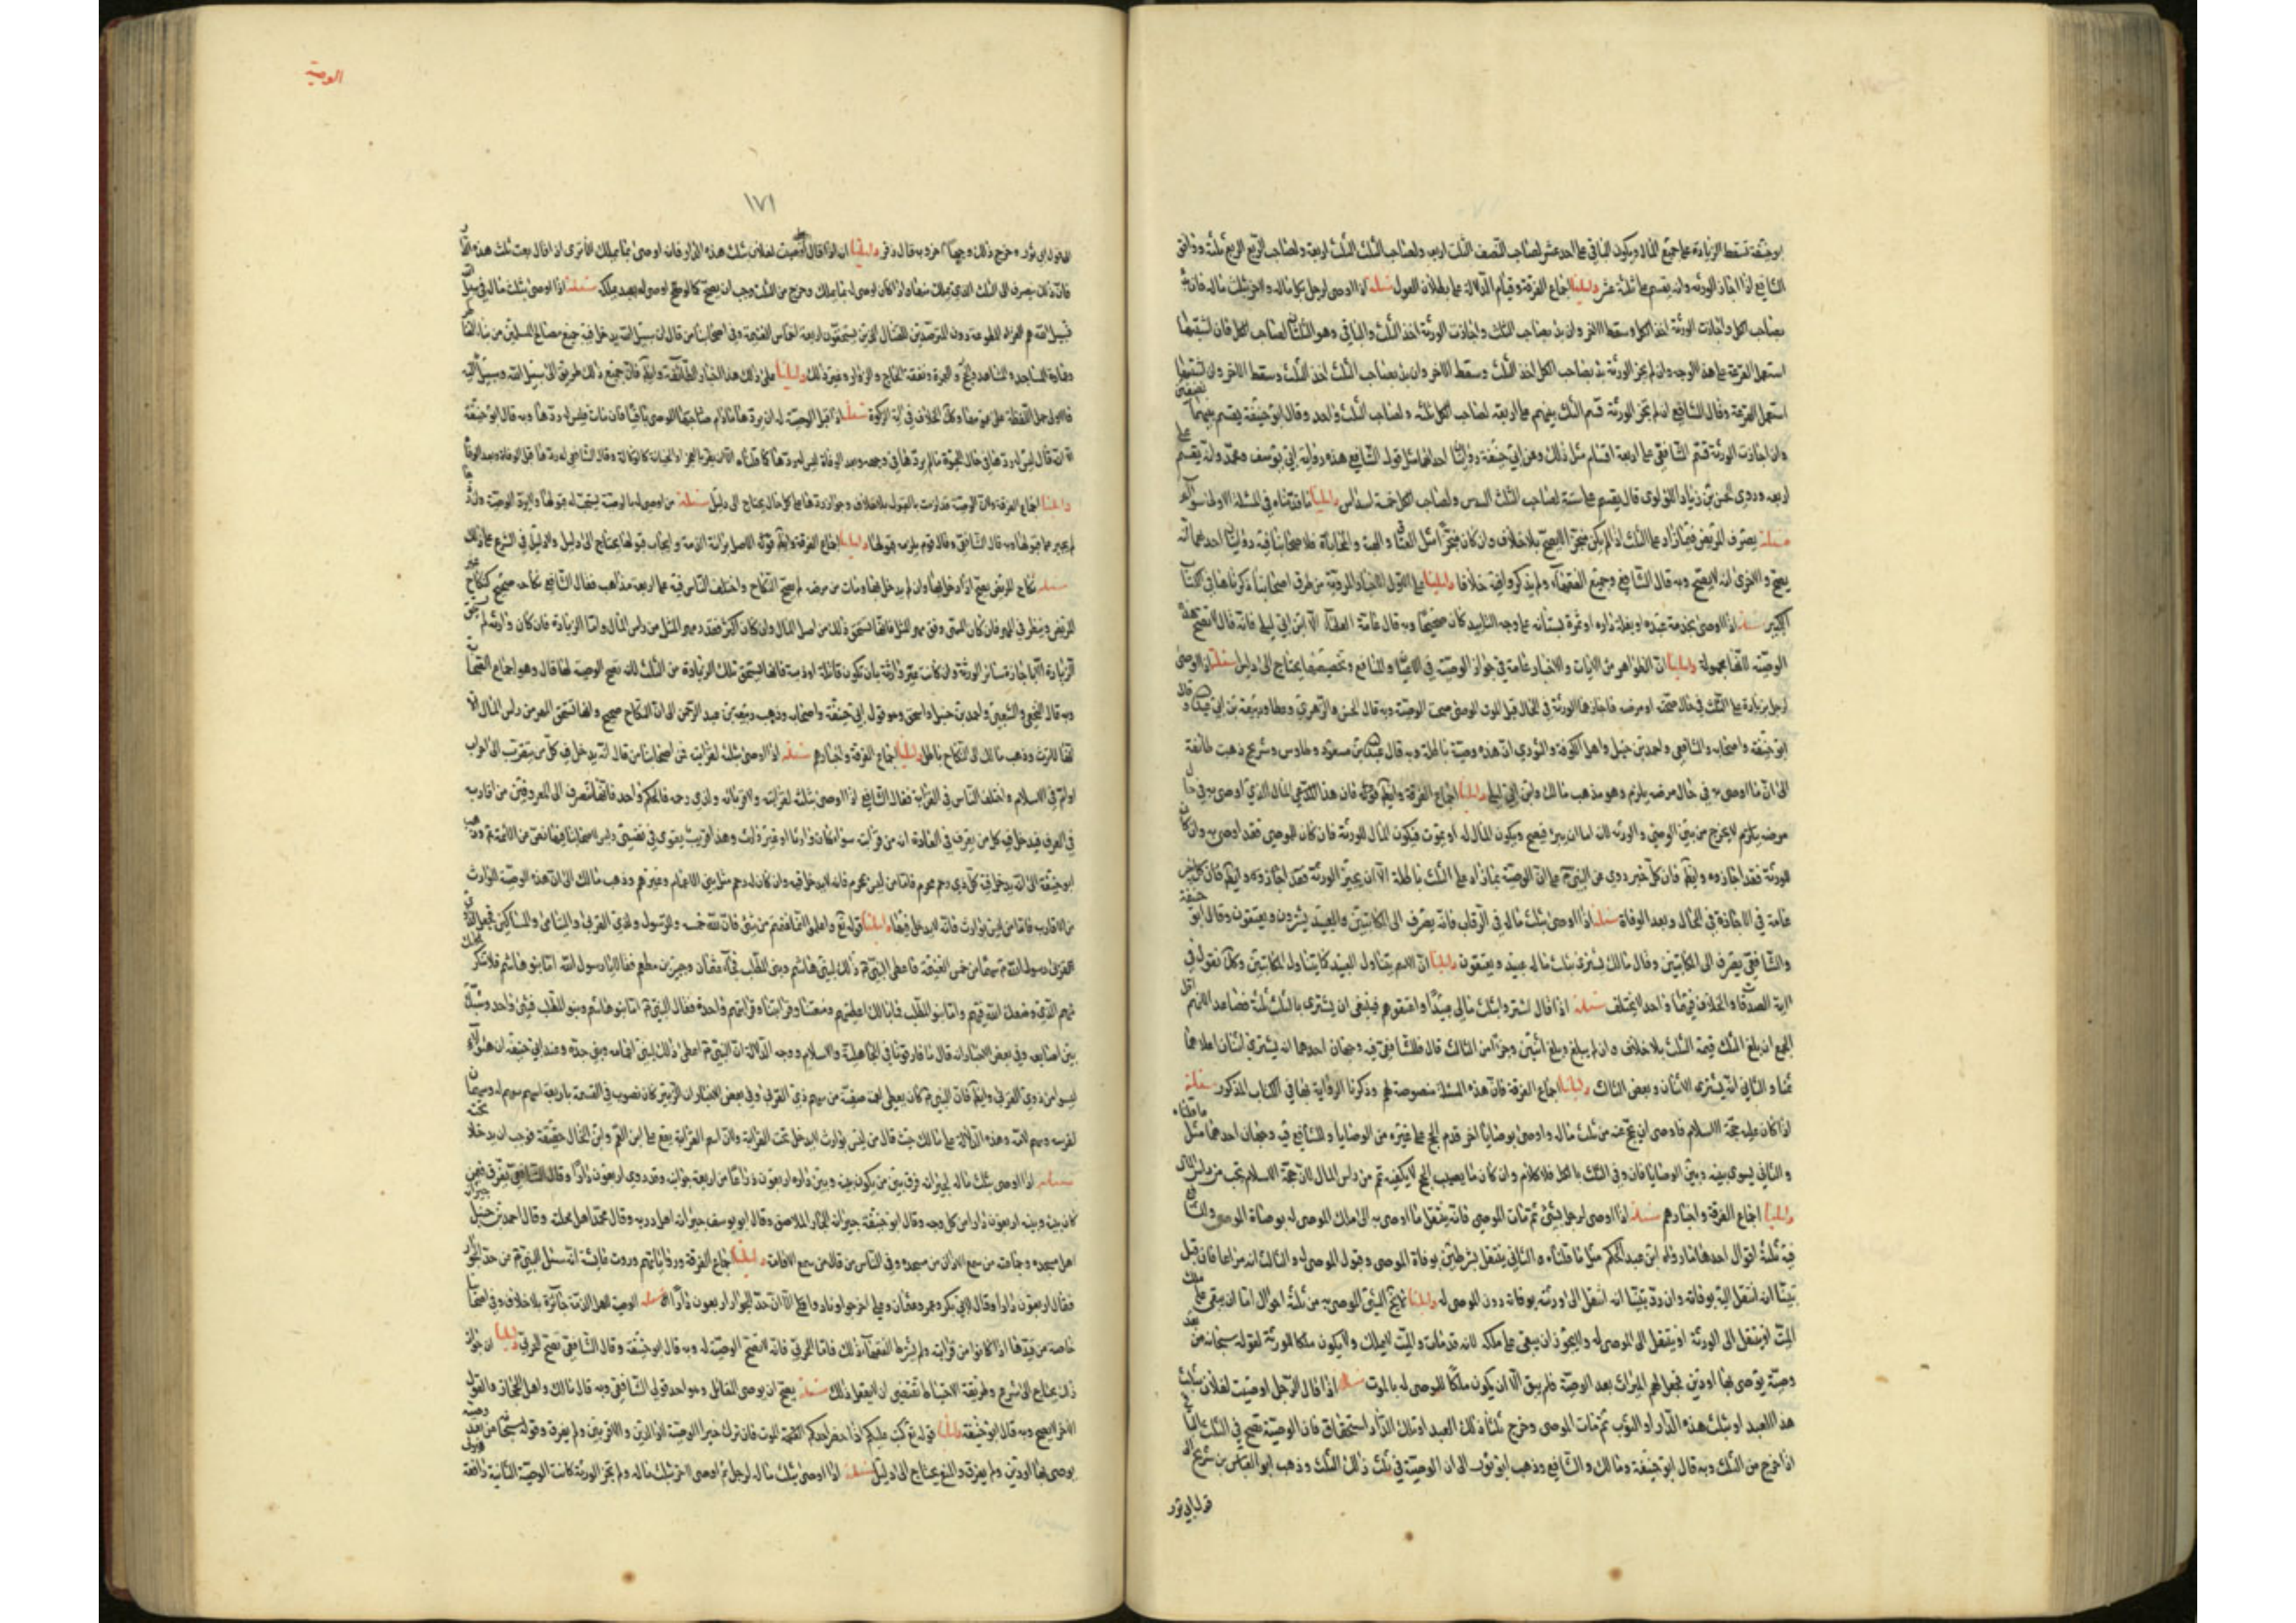 ابو حنيفة تسقط الزيادة على جميع المال ويكون الباقي على احد عشر لصاحب النصف الثلث اربعه ولصاحب الثلث الثلث اربعة ولصاحب الربع الربع ثلثة ووافق
الشافعي اذا اجاز الورثة وانه يقسم على ثلثة عشر دليلنا اجماع الفرقة وقيام الدلالة على بطلان العول مسئلة اذا اوصى لرجل بكل ماله ولاخر بثلث ماله فان
بصاحب الكل واجازت الورثة اخذ الكل وسقط الاخر وان بدئ بصاحب الثلث واجازت الورثة اخذ الثلث والباقي وهو الثلثان لصاحب الكل فان اشتبها
استعمل القرعة على هذا الوجه وان لم يجز الورثة بدئ بصاحب الكل اخذ الثلث وسقط الاخر وان بدئ بصاحب الثلث اخذ الثلث وسقط الاخر وان اشتبها
استعمل القرعة وقال الشافعي ان لم تجز الورثة قسم الثلث بينهم على اربعة لصاحب الكل ثلثه ولصاحب الثلث واحد وقال ابو حنيفة يقسم بينهما نصفين
وان اجازت الورثة قسم الشافعي على اربعة اقسام مثل ذلك وعن ابي حنيفة روايتان احداهما مثل قول الشافعي هذه رواية ابي يوسف ومحمد وانه يقسم على
اربعه وروى الحسن بن زياد اللؤلؤي قال يقسم على ستة لصاحب الثلث السدس ولصاحب الكل خمسة اسداس دليلنا ما قدمناه في المسئلة الاولى سواء
مسئلة تصرف المريض فيما زاد على الثلث اذا لم يكن منجزا لا يصح بلا خلاف وان كان منجزا مثل العتاق والهبة والمحاباة فلاصحابنا فيه روايتان احداهما انه
يصح والاخرى انه لا يصح وبه قال الشافعي وجميع الفقهاء ولم يذكروا فيه خلافا دليلنا على الاول الاخبار المروية من طرق اصحابنا ذكرناها في الكتاب
الكبير مسئلة اذا اوصى بخدمة عبده او بغلة داره او ثمرة بستانه على وجه التابيد كان صحيحا وبه قال عامة العلماء الا ابن ابي ليلى فانه قال لا تصح هذه
الوصية لانها مجهولة دليلنا ان الظواهر من الايات والاخبار عامة في جواز الوصية في الاعيان والمنافع وتخصيصها يحتاج الى دليل مسئلة اذا اوصى
لرجل بزيادة على الثلث في حال صحته او مرضه فاجازها الورثة في الحال قبل الموت الموصي صحت الوصية وبه قال الحسن والزهري وعطا وربيعة بن ابي عبد الرحمن وقال
ابو حنيفة واصحابه والشافعي واحمد بن حنبل واهل الكوفة والثوري ان هذه وصية باطلة وبه قال عبد الله بن مسعود وطاوس وشريح ذهبت طائفة
الى ان ما اوصى به في حال مرضه يلزم وهو مذهب مالك وابن ابي ليلى دليلنا اجماع الفرقة وايضا قوله فان هذا لا يدعي المال الذي اوصى به في حال
مرضه يلزم لا يخرج من بين الموصي والورثه لانه اما ان يبرء فيصح ويكون المال له او يموت فيكون المال للورثة فان كان للموصي فقد اوصى به وان كان
للورثة فقد اجازوه وايضا فان كل خبر روي عن النبي على ان الوصية بما زاد على الثلث باطلة الا ان يجيز الورثة فقد اجازوه وايضا فان الاخبار
عامة في الاجازة في الحال وبعد الوفاة مسئلة اذا اوصى بثلث ماله في الرقاب فانه يصرف الى المكاتبين والعبيد يشترون ويعتقون وقال ابو حنيفة
والشافعي يصرف الى المكاتبين وقال مالك يشترى بثلث ماله عبيد ويعتقون دليلنا ان الاسم يتناول العبيد كما يتناول المكاتبين وكذا نقول في
اية الصدقات والخلاف فيهما واحد لا يختلف مسئلة اذا قال اشتروا بثلث مالي عبيدا واعتقوهم فينبغي ان يشترى بالثلث ثلثة فصاعدا لانهم اقل
الجمع ان بلغ الثلث قيمة الثلث بلا خلاف وان لم يبلغ وبلغ اثنين وجزءا من الثالث قال فللشافعي فيه وجهان احدهما ان يشترى اثنان اعلاهما
ثمنا والثاني انه يشترى الاثنان وبعض الثالث دليلنا اجماع الفرقة فان هذه المسئلة منصوصة لهم وذكرنا الرواية بها في الكتاب المذكور مسئلة
اذا كان عليه حجة الاسلام فاوصى ان يحج عنه من ثلث ماله واوصى بوصايا اخر قدم الحج على غيره من الوصايا وللشافعي فيه وجهان احدهما مثل ما قلناه
والثاني يسوى بينه وبين الوصايا فان وفى الثلث بالكل فلا كلام وان كان ما يصيب الحج لا يكفيه تمم من راس المال لان حجة الاسلام تجب من راس المال
دليلنا اجماع الفرقة واخبارهم مسئلة اذا اوصى لرجل بشئ ثم مات الموصي فانه ينتقل ما اوصى به الى ملك الموصى له بوفاة الموصي وللشافعي
فيه ثلثة اقوال احدها ما رواه ابن عبد الحكم مثل ما قلناه والثاني ينتقل بشرطين بوفاة الموصي وقبول الموصى له والثالث انه مراعا فان قبل
تبينا انه انتقل اليه بوفاته وان رد تبينا انه انتقل الى ورثته بوفاته دون الموصى له دليلنا لا يخلو الشئ الموصى به من ثلثة احوال اما ان يبقى على ملك
الميت او ينتقل الى الورثة او ينتقل الى الموصى له ولا يجوز ان يبقى على ملكه لانه قد مات والميت لا يملك ولا يكون ملكا للورثة لقوله سبحانه من بعد
وصية يوصى بها او دين فجعل لهم الميراث بعد الوصية فلم يبق الا ان يكون ملكا للموصى له بالموت مسئلة اذا قال الرجل اوصيت لفلان بثلث
هذا العبد او بثلث هذه الدار او الثوب ثم مات الموصي وخرج ثلثا ذلك العبد او تلك الدار استحقاق فان الوصية تصح في الثلث الباقي
اذا خرج من الثلث وبه قال ابو حنيفة ومالك والشافعي وذهب ابو ثور الى ان الوصية في ثلث ذلك الثلث وذهب ابو العباس بن شريح الى
قول ابي ثور
الوصية
١٧١
الى قول ابي ثور وخرج ذلك وجها اخر وبه قال زفر دليلنا انه اذا قال اوصيت لفلان بثلث هذه الدار فان اوصى بما يملك الا ترى اذا قال بعت ثلث هذه
فان ذلك يصرف الى الثلث الذي يملك منها واذا كان اوصى له بما يملك وخرج من الثلث وجب ان يصح كما لو اوصى له بعبد يملكه مسئلة اذا اوصى بثلث ماله في سبيل الله
فسبيل الله هم الغزاة المطوعة دون المترصدين للقتال الذين يستحقون اربعة اخماس الغنيمة وفي اصحابنا من قال ان سبيل الله يدخل فيه جميع مصالح المسلمين من بناء القناطر
وعمارة المساجد والمشاهد والحج والعمرة ونفقة الحاج والزوار وغير ذلك دليلنا على ذلك هذا اخبار الطائفة وايضا فان جميع ذلك طريق الى سبيل الله وسبيل الله
فالاولى حمل اللفظة على عمومها وكذا الخلاف في اية الزكوة مسئلة اذا قبل الوصية له ان يردها ما دام صاحبها الموصي باقيا فان مات فليس له ردها وبه قال ابو حنيفة
الا انه قال ليس له ردها في حال الحيوة ما لم يردها في وجهه وبعد الوفاة ليس له ردها كما قلناه وقال الشافعي له ردها قبل الوفاة وبعد الوفاة
دليلنا اجماع الفرقة وان الوصية قد لزمت بالقبول بلا خلاف وجواز ردها على كل حال يحتاج الى دليل مسئلة من اوصى له بالوصية يستحب له قبولها ولا يرد الوصية وان
لم يجبر على قبولها وبه قال الشافعي وقال قوم يلزمه قبولها دليلنا اجماع الفرقة وايضا قوله الاصل براءة الذمة وايجاب قبولها يحتاج الى دليل ولا دليل في الشرع على ذلك
مسئلة نكاح المريض يصح اذا دخل بها وان لم يدخل بها ومات من مرضه لم يصح النكاح واختلف الناس فيه على اربعة مذاهب فقال الشافعي نكاحه صحيح كنكاح غير
المريض وينظر في المهر فان كان المسمى وفق مهر المثل فانها تستحق ذلك من اصل المال وان كان اكثر فقدر مهر المثل من راس المال واما الزيادة فان كان وارثه لم تستحق
الزيادة الا باجازة سائر الورثة وان كانت غير وارثة بان تكون قاتلة او ذمية فانها تستحق تلك الزيادة من الثلث لانه تصح الوصية لها قال وهو اجماع الصحابة
وبه قال النخعي والشعبي واحمد بن حنبل واسحق وهو قول ابي حنيفة واصحابه وذهب ربيعة بن عبد الرحمن الى ان النكاح صحيح ولها تستحق المهر من راس المال الا
انها لا ترث وذهب مالك الى ان النكاح باطل دليلنا اجماع الفرقة واخبارهم مسئلة اذا اوصى بثلثه لقرابته فمن اصحابنا من قال انه يدخل فيه كل من يتقرب اليه الى اخر اب
او ام في الاسلام واختلف الناس في القرابة فقال الشافعي اذا اوصى بثلثه لقرابته ولاقربائه ولذي رحمه فالحكم واحد فانها تنصرف الى المعروفين من اقاربه
في العرف فيدخل فيه كل من يعرف في العادة انه من قرابته سواء كان وارثا او غير ذلك وهذا قريب يقوى في نفسي وليس لاصحابنا فيها نص من الائمة وذهب
ابو حنيفة الى انه يدخل فيه كل ذي رحم محرم فاما من ليس بمحرم فانه لا يدخل فيه وان كان له رحم مثل بني الاعمام وغيرهم وذهب مالك الى ان هذه الوصية للوارث
من الاقارب فاما من ليس بوارث فانه لا يدخل فيها دليلنا قوله تع واعلموا انما غنمتم من شئ فان لله خمسه وللرسول ولذي القربى واليتامى والمساكين فجعل لذي
القربى رسول الله سهما من خمس الغنيمة فاعطى النبي ذلك لبني هاشم وبني المطلب فجاء عثمان وجبير بن مطعم فقالا يا رسول الله اما بنو هاشم فلا ننكر فضلهم
منهم الذي وضعك الله فيهم واما بنو المطلب فما بالك اعطيتهم ومنعتنا وقرابتنا وقرابتهم واحدة فقال النبي اما بنو هاشم وبنو المطلب فشئ واحد وشبك
بين اصابعه وفي بعض الاخبار انه قال ما فارقونا في الجاهلية والاسلام ووجه الدلالة ان النبي اعطى ذلك لبني اعمامه وبني جده وعند ابي حنيفة ان هؤلاء
ليسوا من ذوي القربى وايضا فان النبي كان يعطي لعمته صفية من سهم ذي القربى وفي بعض الاخبار ان الزبير كان يضرب في القسمة باربعة اسهم سهم له وسهمان
لفرسه وسهم لامه وهذه الدلالة على مالك حيث قال من ليس بوارث لا يدخل تحت القرابة ولان اسم القرابة يقع على ابن العم وابن الخال حقيقة فوجب ان يدخلا تحته
مسئلة اذا اوصى بثلث ماله لجيرانه فرق بين من يكون بينه وبين داره اربعون ذراعا من اربعة جوانب وقد روي اربعون دارا وقال الشافعي يفرق فيمن
كان بينه وبينه اربعون دارا من كل وجه وقال ابو حنيفة جيرانه الجار الملاصق وقال ابو يوسف جيرانه اهل دربه وقال محمد اهل محلته وقال احمد بن حنبل جيرانه
اهل مسجده وجماعته من سمع الاذان من مسجده وفي الناس من قال من سمع الاقامة دليلنا اجماع الفرقة ورواياتهم وروت عائشة انه سئل النبي عن حد الجوار
فقال اربعون دارا مسئلة الوصية لاهل الذمة جائزة بلا خلاف وفي اصحابنا
خاصة من قيدها اذا كانوا من قرابته ولم يشرط الفقهاء ذلك فاما الحربي فانه لا تصح الوصية له وبه قال ابو حنيفة وقال الشافعي تصح للحربي دليلنا ان جواز
ذلك يحتاج الى شرع وطريقة الاحتياط تقتضي ان لا يفعل ذلك مسئلة يصح ان يوصي للقاتل وهو احد قولي الشافعي وبه قال مالك واهل الحجاز والقول
الاخر لا يصح وبه قال ابو حنيفة دليلنا قوله تع كتب عليكم اذا حضر احدكم الموت ان ترك خيرا الوصية للوالدين والاقربين ولم يفرق وقوله سبحانه من بعد وصية
يوصى بها او دين ولم يفرق والمنع يحتاج الى دليل مسئلة اذا اوصى بثلث ماله لرجل ثم اوصى لاخر بثلث ماله ولم يجز الورثة كانت الوصية الثانية رافعة